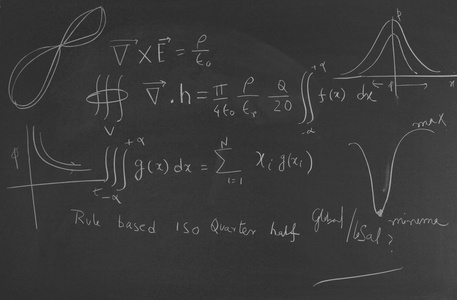 ∇⃗ × E⃗ = ρ/ε₀
∭ ∇⃗ . h = π/4ε₀ ρ/εᵣ Q/20 ∬ f(x) dx
V
+α
-α
ρ
x
φ
∭ g(x) dx = Σ xᵢ g(xᵢ)
+α
-α
N
i=1
max
Rule based ISO Quarter half global / local minima
?